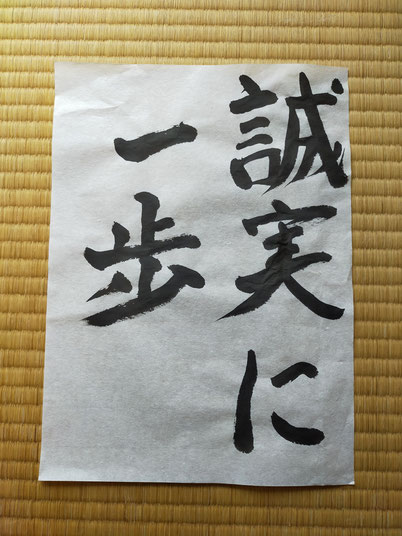 誠実に
一歩